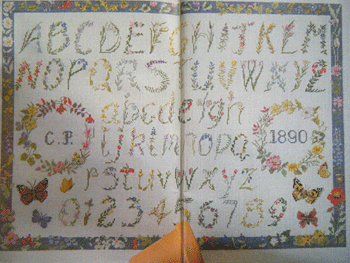 ABCDEFGHIJKLM
NOPQRSTUVWXYZ
abcdefgh
C.P. ijklmnopq 1890
rstuvwxyz
0123456789